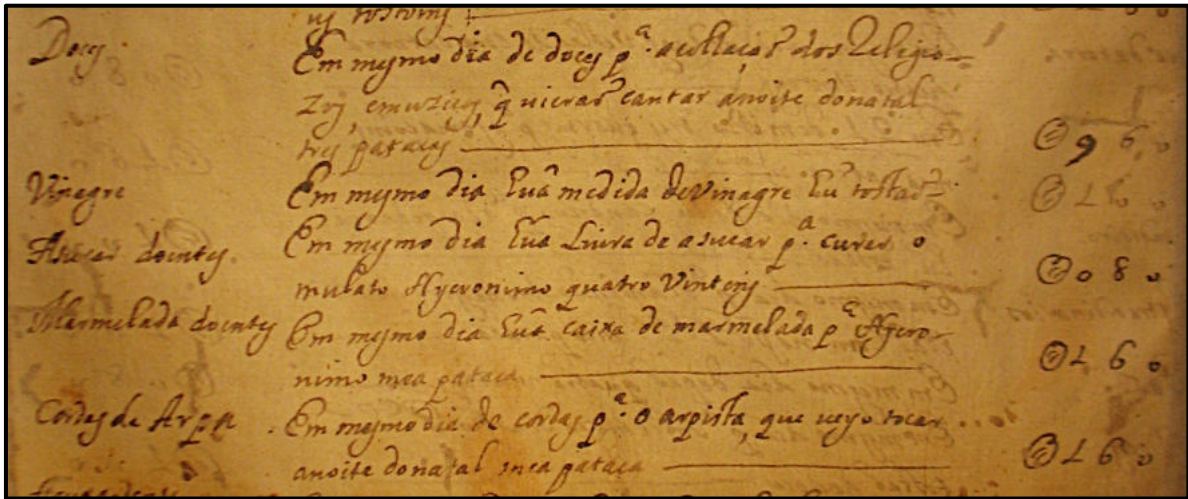 us tostoins
Doces Em mesmo dia de doces pª. acollaçaõ dos Religio-
zos, emuzicos, q̃ uieraõ cantar anoite donatal
tres patacas 960
Vinagre Em mesmo dia huã medida de Vinagre hu tostaõ
Asucar doentes. Em mesmo dia huã Liura de asucar pª. curar o
mulato Hyeronimo quatro Vintens 080
Marmelada doentes Em mesmo dia huã caixa de marmelada pª Hyero-
nimo mea pataca 160
Cordas de Arpa. Em mesmo dia de cordas pª. o arpista, que ueyo tocar
anoite donatal mea pataca 160